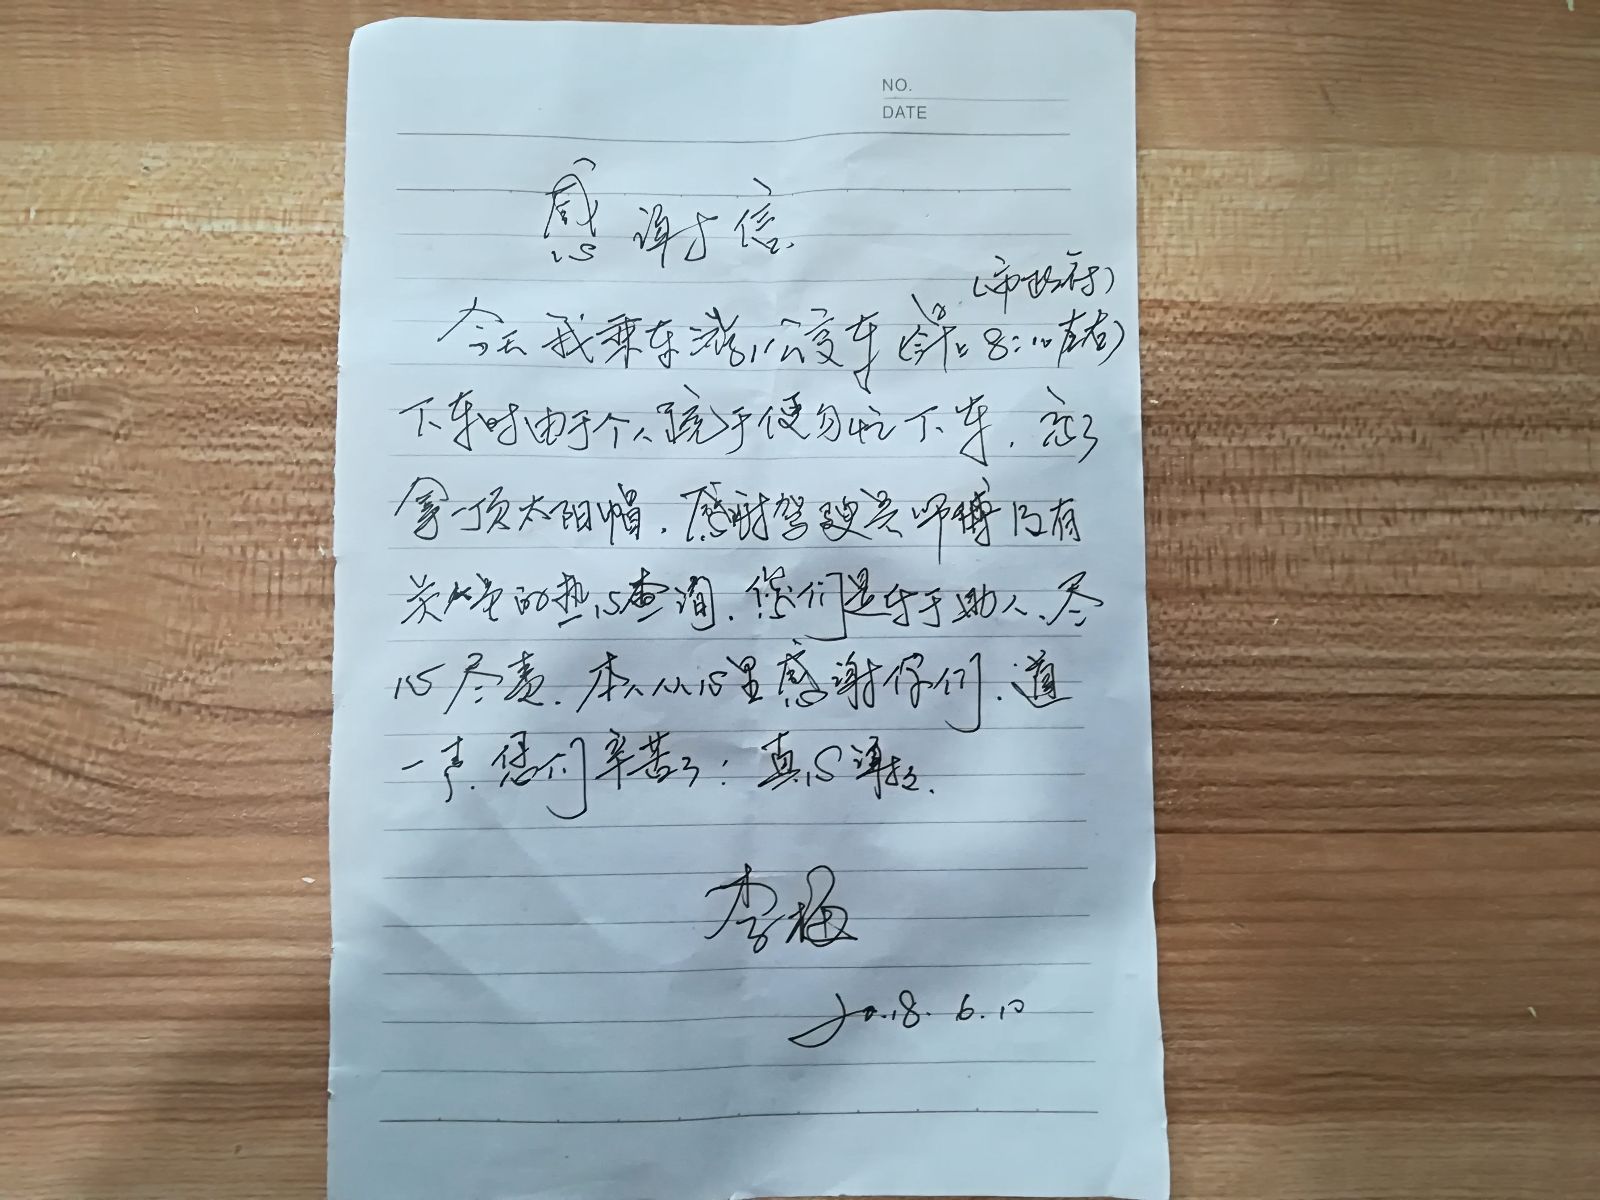 NO.
DATE
感谢信
(市政府)
今天我乘车游1公交车(今早上8:10左右)
下车时由于个人疏于便匆忙下车,忘了
拿一顶太阳帽,感谢驾驶员师博及有
关人员的热心查询,您们是乐于助人、尽
心尽责,本人从心里感谢你们,道
一声,您们辛苦了!真心谢谢.
李梅
2018.6.10